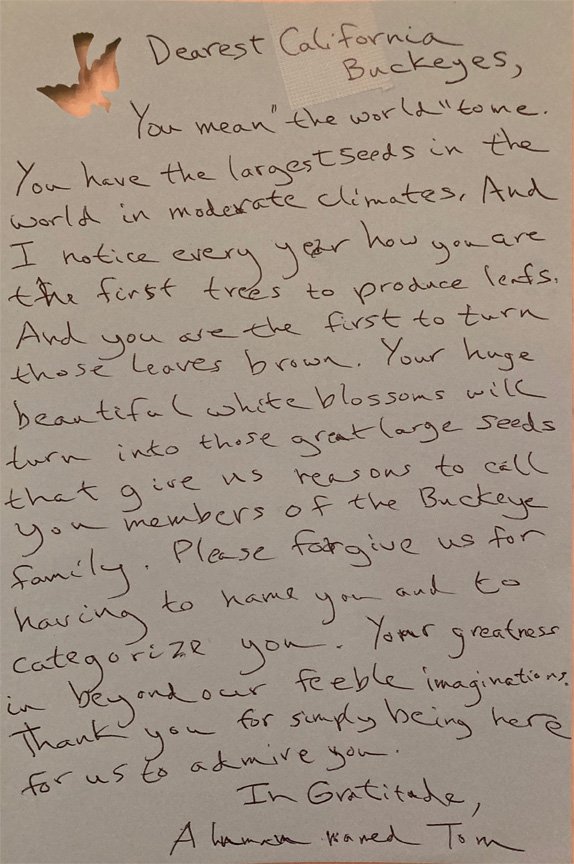 Dearest California
Buckeyes,
You mean "the world" to me.
You have the largest seeds in the
world in moderate climates. And
I notice every year how you are
the first trees to produce leafs.
And you are the first to turn
those leaves brown. Your huge
beautiful white blossoms will
turn into those great large seeds
that give us reasons to call
you members of the Buckeye
family. Please forgive us for
having to name you and to
categorize you. Your greatness
in beyond our feeble imaginations.
Thank you for simply being here
for us to admire you.
In Gratitude,
A human named Tom